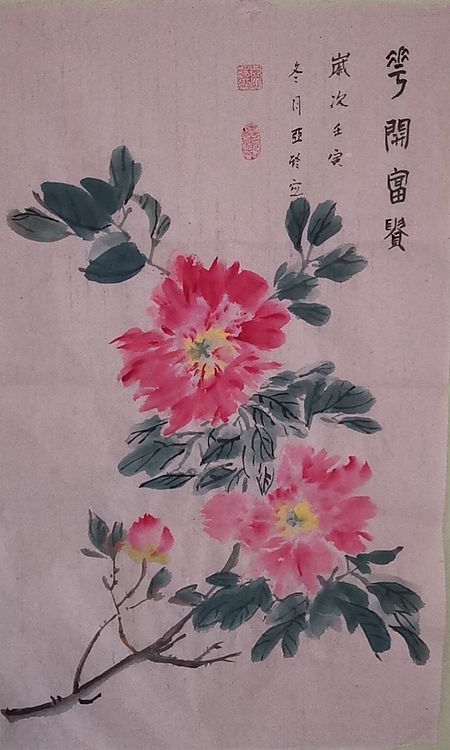 花開富貴
歲次壬寅
冬月亞